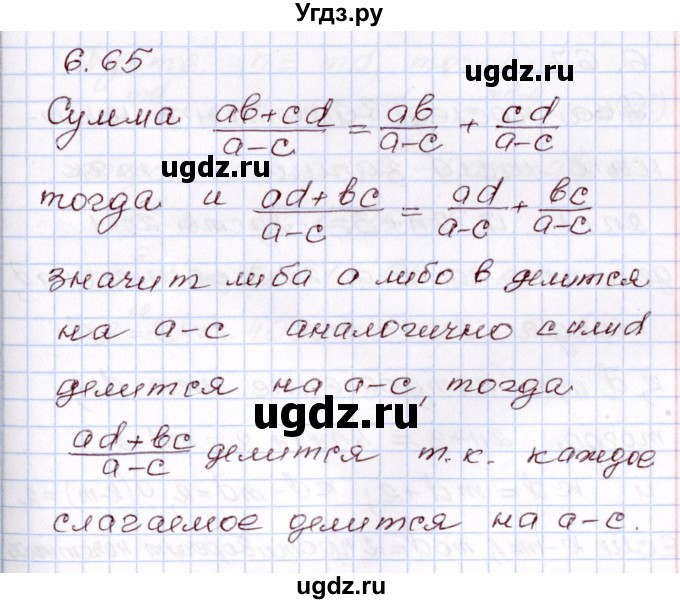 Угдз.ру
6.65
ugdz.ru
Сумма (ab+cd)/(a-c) = ab/(a-c) + cd/(a-c)
ugdz.ru
тогда и (ad+bc)/(a-c) = ad/(a-c) + bc/(a-c)
значит либа a либо в делится
на a-c аналогично c или d
делится на a-c, тогда
ugdz.ru
(ad+bc)/(a-c) делится т.к. каждое
слагаемое делится на a-c.
ugdz.ru
ugdz.ru